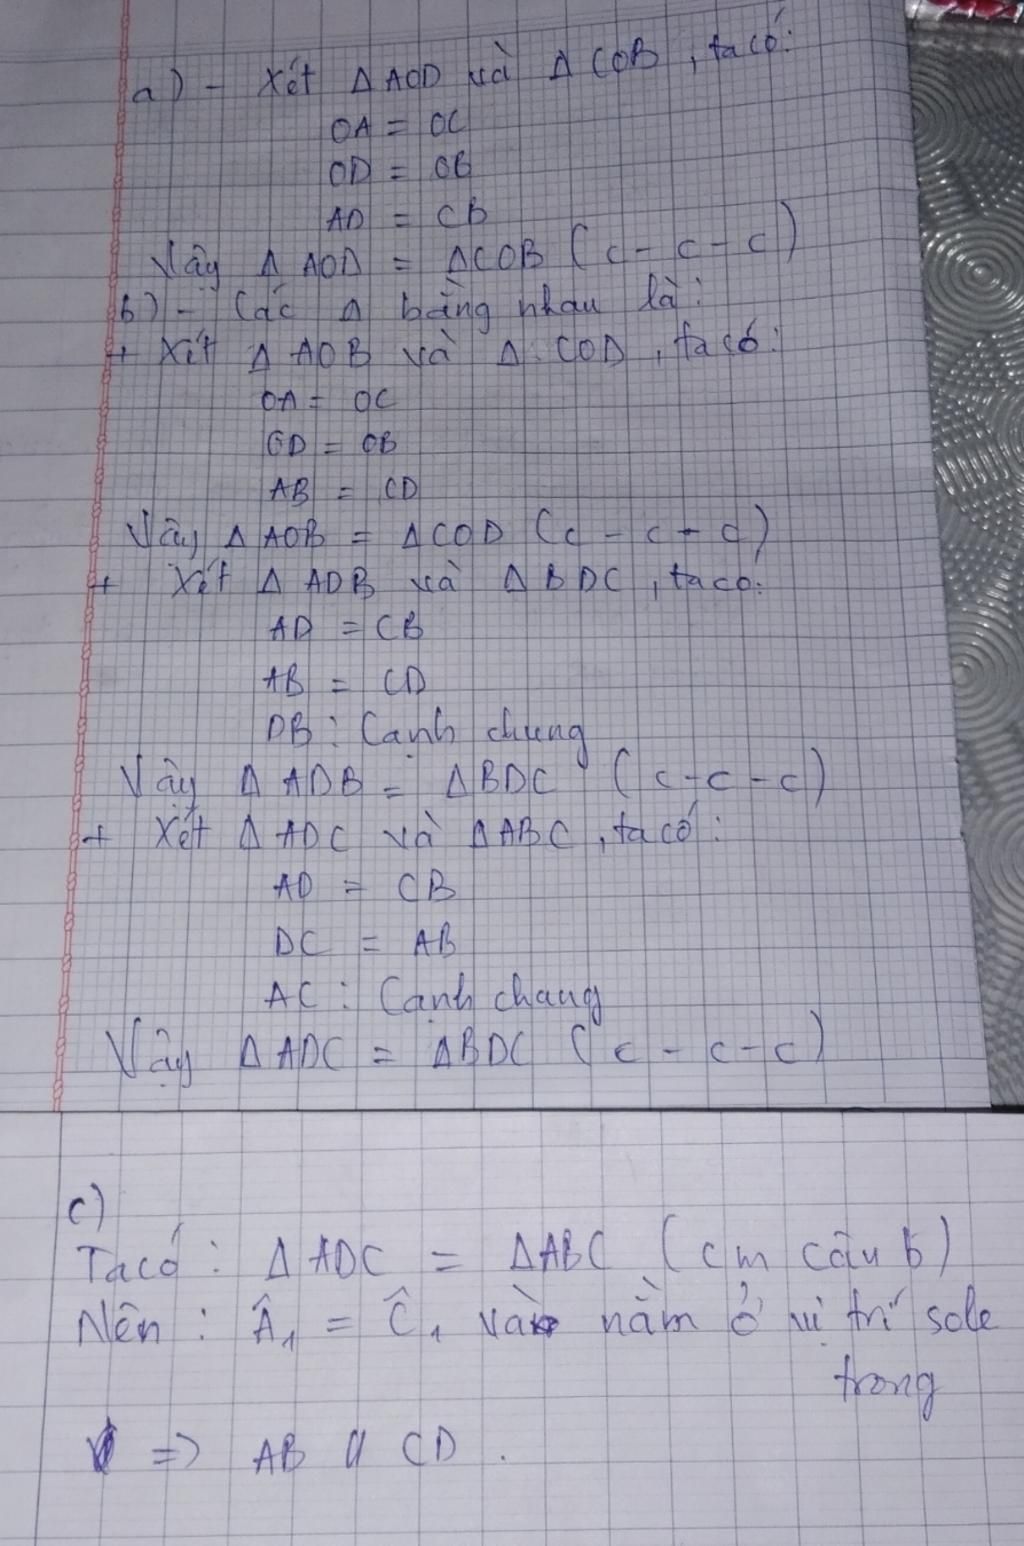 a) - Xét Δ AOD và Δ COB, ta có:
OA = OC
OD = OB
AD = CB
Vậy Δ AOD = ΔCOB (c - c - c)
b) - Các Δ bằng nhau là:
+ Xét Δ AOB và Δ COD, ta có:
OA = OC
OD = OB
AB = CD
Vậy Δ AOB = ΔCOD (c - c - c)
+ Xét Δ ADB và Δ BDC, ta có:
AD = CB
AB = CD
DB : Cạnh chung
Vậy Δ ADB = ΔBDC (c - c - c)
+ Xét Δ ADC và ΔABC, ta có:
AD = CB
DC = AB
AC : Cạnh chaung
Vậy Δ ADC = ΔBDC (c - c - c)
c)
Ta có : Δ ADC = ΔABC (cm câu b)
Nên : Â₁ = Ĉ₁ và nằm ở vị trí sole
trong
=> AB // CD .